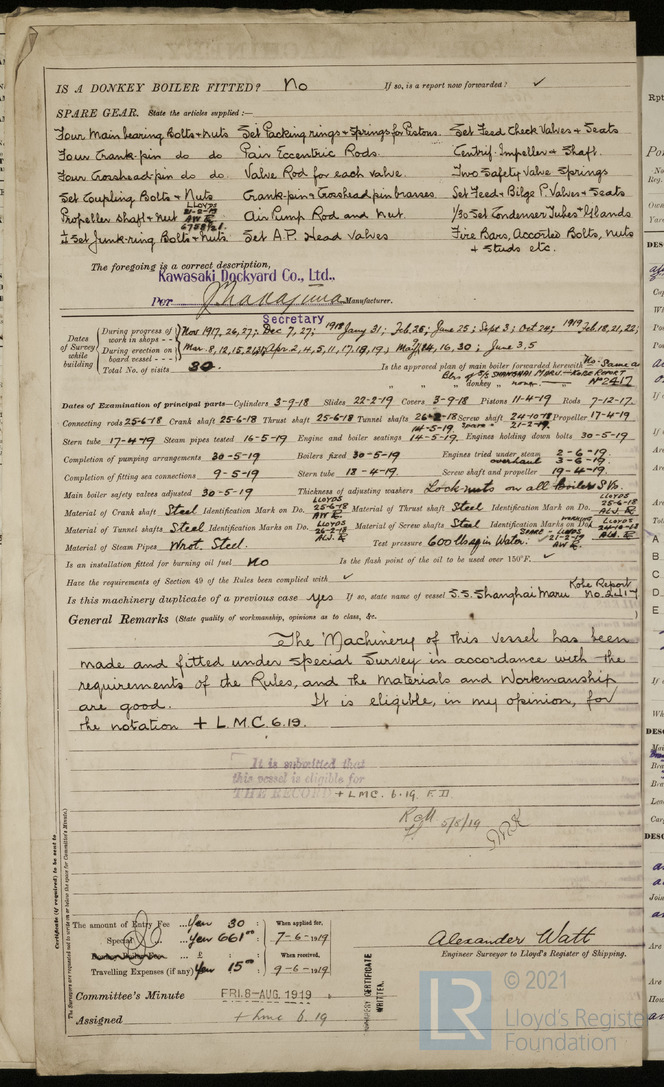 IS A DONKEY BOILER FITTED? No If so, is a report now forwarded? ✓
SPARE GEAR. State the articles supplied :—
Four Main bearing Bolts & Nuts Set Packing rings & Springs for Pistons. Set Feed Check Valves & Seats
Four Crank-pin do do Pair Eccentric Rods. Centrif. Impeller & Shaft.
Four Crosshead-pin do do. Valve Rod for each valve. Two Safety Valve Springs
Set Coupling Bolts & Nuts Crank-pin & Crosshead pin brasses. Set Feed & Bilge P. Valves & Seats
Propeller Shaft & Nut LLOYDS 21-2-19 AW Air Pump Rod and Nut. 1/30 Set Condenser Tubes & Glands
Set Junk-ring Bolts & Nuts Set A.P. Head Valves Fire Bars, Accorted Bolts, Nuts
& Studs etc.
The foregoing is a correct description,
Kawasaki Dockyard Co., Ltd.,
Per Manufacturer.
Secretary
Dates of Survey while building
During progress of work in shops - - Nov 1917, 26, 27; Dec 7, 27; 1918 Jany 31; Feb. 28; June 25; Sept 3; Oct 24; 1919 Feb. 18, 21, 22;
During erection on board vessel - - Mar. 8, 12, 15, 21, Apr. 2, 4, 5, 11, 17, 18, 19; May 9, 14, 16, 30; June 3, 5
Total No. of visits 30. Is the approved plan of main boiler forwarded herewith No. Same as
Blrs of S/S SHANGHAI MARU - KOBE REPORT
" " " donkey " none. " No 2417
Dates of Examination of principal parts—Cylinders 3-9-18 Slides 22-2-19 Covers 3-9-18 Pistons 11-4-19 Rods 7-12-17.
Connecting rods 25-6-18 Crank shaft 25-6-18 Thrust shaft 25-6-18 Tunnel shafts 26-2-18 Screw shaft 24-10-18 Propeller 17-4-19
14-5-19 spare " 21-2-19
Stern tube 17-4-19 Steam pipes tested 16-5-19 Engine and boiler seatings 14-5-19. Engines holding down bolts 30-5-19
Completion of pumping arrangements 30-5-19 Boilers fixed 30-5-19 Engines tried under steam 2-6-19.
overhaul 3-6-19.
Completion of fitting sea connections 9-5-19 Stern tube 18-4-19 Screw shaft and propeller 19-4-19
Main boiler safety valves adjusted 30-5-19 Thickness of adjusting washers Lock-nuts on all Boilers S.Vs.
Material of Crank shaft Steel Identification Mark on Do. LLOYDS 25-6-18 AW Material of Thrust shaft Steel Identification Mark on Do. LLOYDS 25-6-18
Material of Tunnel shafts Steel Identification Marks on Do. LLOYDS 26-2-18 Material of Screw shafts Steel Identification Marks on Do. LLOYDS 24-10-18
Material of Steam Pipes Wrot. Steel. Test pressure 600 lbs sq in Water. SPARE - LLOYDS 21-2-19 AW
Is an installation fitted for burning oil fuel No Is the flash point of the oil to be used over 150°F. ✓
Have the requirements of Section 49 of the Rules been complied with ✓
Is this machinery duplicate of a previous case yes If so, state name of vessel S.S. Shanghai Maru Kobe Report No. 2417
General Remarks (State quality of workmanship, opinions as to class, &c.
The Machinery of this vessel has been
made and fitted under Special Survey in accordance with the
requirements of the Rules, and the Materials and Workmanship
are good. It is eligible, in my opinion, for
the notation + L.M.C. 6.19.
It is submitted that
this vessel is eligible for
THE RECORD + LMC. 6.19. F.D.
5/8/19
Certificate (if required) to be sent to
The Surveyors are requested not to write on or below the space for Committee's Minute.
The amount of Entry Fee ... Yen 30 : When applied for,
Special ... Yen 661.00 : 7-6-1919
Donkey Boiler Fee ... £ : : When received,
Travelling Expenses (if any) Yen 15.00 : 9-6-1919
Alexander Watt
Engineer Surveyor to Lloyd's Register of Shipping.
Committee's Minute FRI. 8-AUG. 1919
Assigned + Lmc 6.19
CERTIFICATE WRITTEN.
© 2021
Lloyd's Register
Foundation